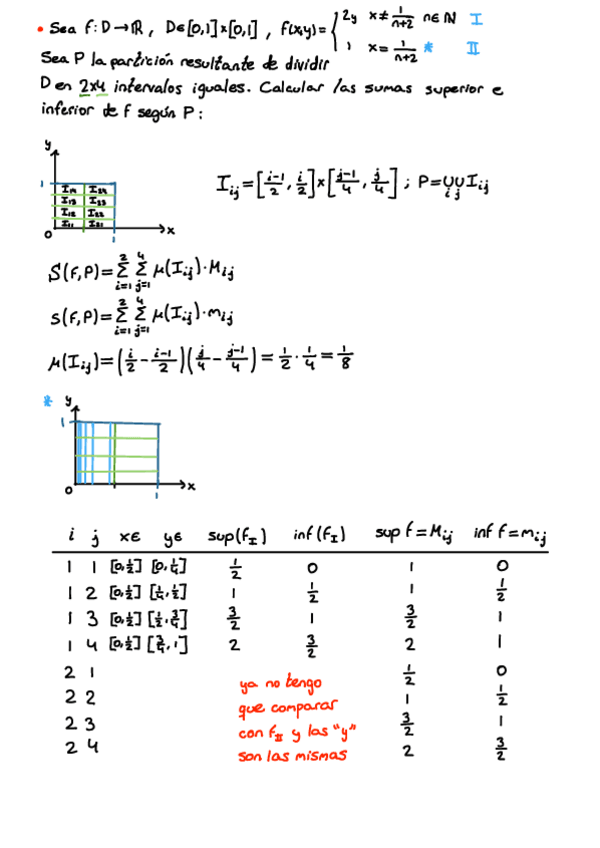 • Sea f: D→ℝ, D∈[0,1]×[0,1], f(x,y)= { 2y x≠1/(n+2) n∈ℕ I
1 x=1/(n+2) * II
Sea P la partición resultante de dividir
D en 2x4 intervalos iguales. Calcular las sumas superior e
inferior de f según P:
y
1
I₁₄ I₂₄
I₁₃ I₂₃
I₁₂ I₂₂
I₁₁ I₂₁
0 1 x
Iᵢⱼ=[(i-1)/2, i/2]×[(j-1)/4, j/4]; P=∪ᵢ∪ⱼIᵢⱼ
S(f,P)=∑_{i=1}^{2} ∑_{j=1}^{4} μ(Iᵢⱼ)·Mᵢⱼ
s(f,P)=∑_{i=1}^{2} ∑_{j=1}^{4} μ(Iᵢⱼ)·mᵢⱼ
μ(Iᵢⱼ)=(i/2-(i-1)/2)(j/4-(j-1)/4)=1/2·1/4=1/8
* y
1
0 1 x
i j x∈ y∈ sup(f_I) inf(f_I) sup f=Mᵢⱼ inf f=mᵢⱼ
1 1 [0,1/2] [0,1/4] 1/2 0 1 0
1 2 [0,1/2] [1/4,1/2] 1 1/2 1 1/2
1 3 [0,1/2] [1/2,3/4] 3/2 1 3/2 1
1 4 [0,1/2] [3/4,1] 2 3/2 2 1
2 1 1/2 0
2 2 1 1/2
2 3 3/2 1
2 4 2 3/2
ya no tengo
que comparar
con f_II y las "y"
son las mismas